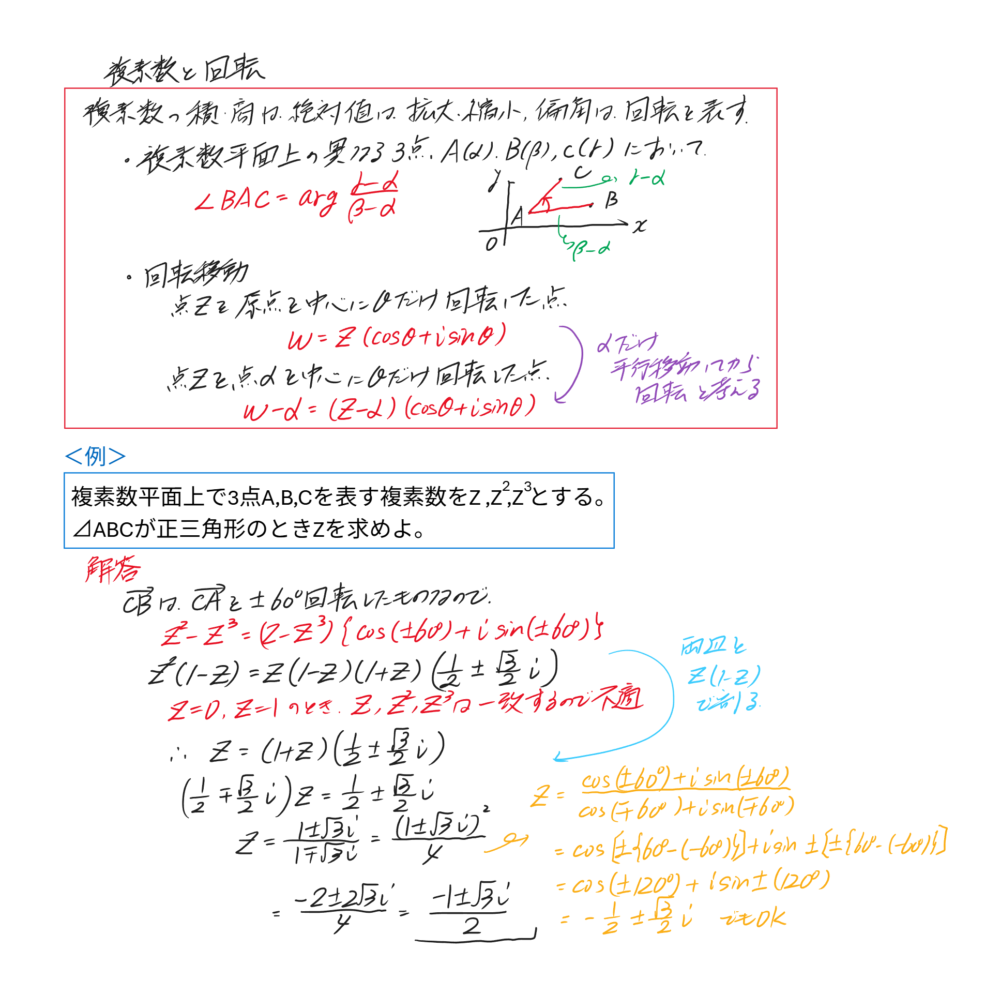 複素数と回転
複素数の積・商は、絶対値は拡大・縮小、偏角は回転を表す。
・複素数平面上の異なる3点、A(α)、B(β)、C(γ)において
∠BAC = arg (γ-α)/(β-α)
y C γ-α
A B
O x
β-α
・回転移動
点Zを原点を中心にθだけ回転した点
w = Z(cosθ+i sinθ)
点Zを点αを中心にθだけ回転した点
w-α = (Z-α)(cosθ+i sinθ)
αだけ
平行移動してから
回転と考える
<例>
複素数平面上で3点A,B,Cを表す複素数をZ,Z²,Z³とする。
⊿ABCが正三角形のときZを求めよ。
解答
CB→は、CA→を±60°回転したものなので、
Z²-Z³ = (Z-Z³){cos(±60°)+i sin(±60°)}
Z²(1-Z) = Z(1-Z)(1+Z)(1/2 ± √3/2 i)
Z=0, Z=1のとき、Z, Z², Z³は一致するので不適
両辺を
Z(1-Z)
で割る
∴ Z = (1+Z)(1/2 ± √3/2 i)
(1/2 ∓ √3/2 i)Z = 1/2 ± √3/2 i
Z = (1±√3i)/(1∓√3i) = (1±√3i)²/4
= (-2±2√3i)/4 = (-1±√3i)/2
Z = (cos(±60°)+i sin(±60°))/(cos(∓60°)+i sin(∓60°))
= cos[±{60°-(-60°)}]+i sin ±[±{60°-(-60°)}]
= cos(±120°)+i sin±(120°)
= -1/2 ± √3/2 i でもOK